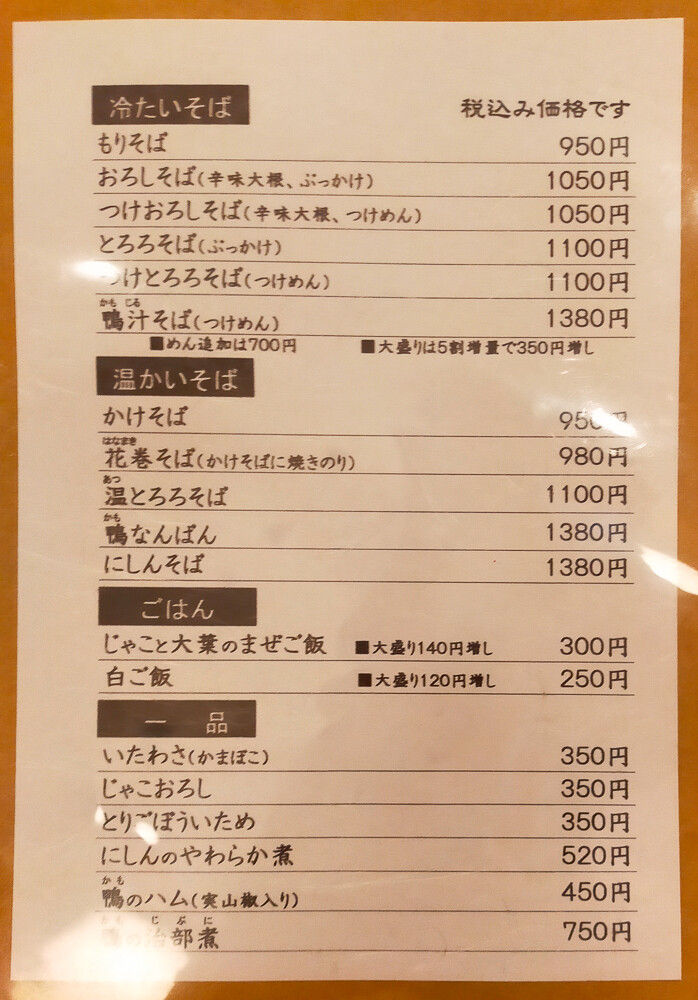 冷たいそば 税込み価格です
もりそば 950円
おろしそば(辛味大根、ぶっかけ) 1050円
つけおろしそば(辛味大根、つけめん) 1050円
とろろそば(ぶっかけ) 1100円
つけとろろそば(つけめん) 1100円
かも じる
鴨汁そば(つけめん) 1380円
■めん追加は700円 ■大盛りは5割増量で350円増し
温かいそば
かけそば 950円
はなまき
花巻そば(かけそばに焼きのり) 980円
あつ
温とろろそば 1100円
かも
鴨なんばん 1380円
にしんそば 1380円
ごはん
じゃこと大葉のまぜご飯 ■大盛り140円増し 300円
白ご飯 ■大盛り120円増し 250円
一品
いたわさ(かまぼこ) 350円
じゃこおろし 350円
とりごぼういため 350円
にしんのやわらか煮 520円
かも
鴨のハム(実山椒入り) 450円
かも じぶに
鴨の治部煮 750円